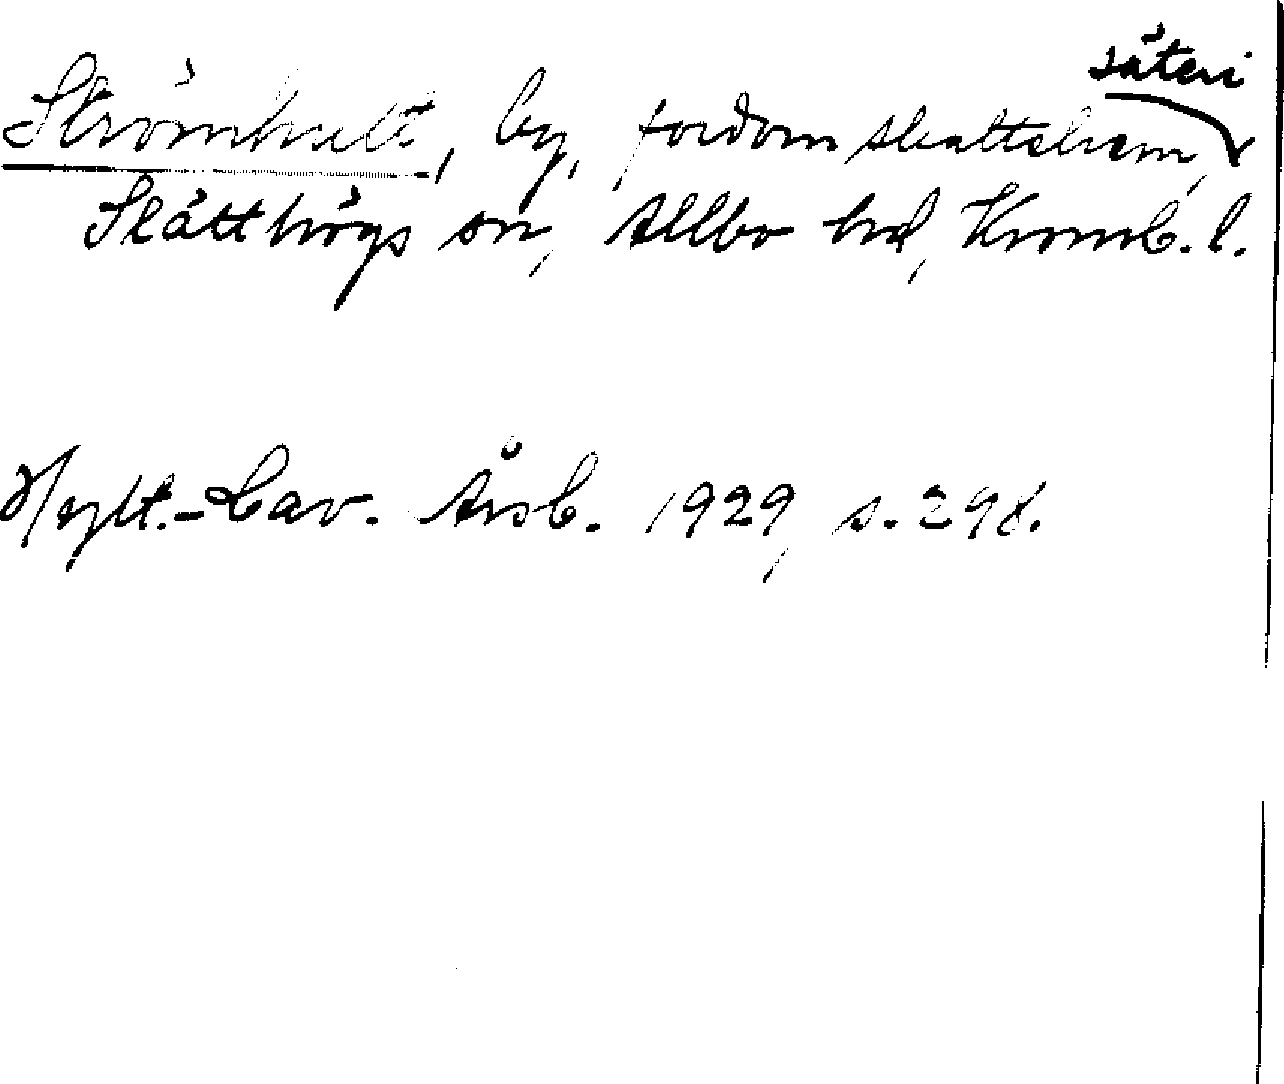 Strömhult, by, fordom skattehem, säteri
Slätthögs sn, Allbo hd, Kronob. l.
Hylt.-Cav. Årsb. 1929, s. 298.